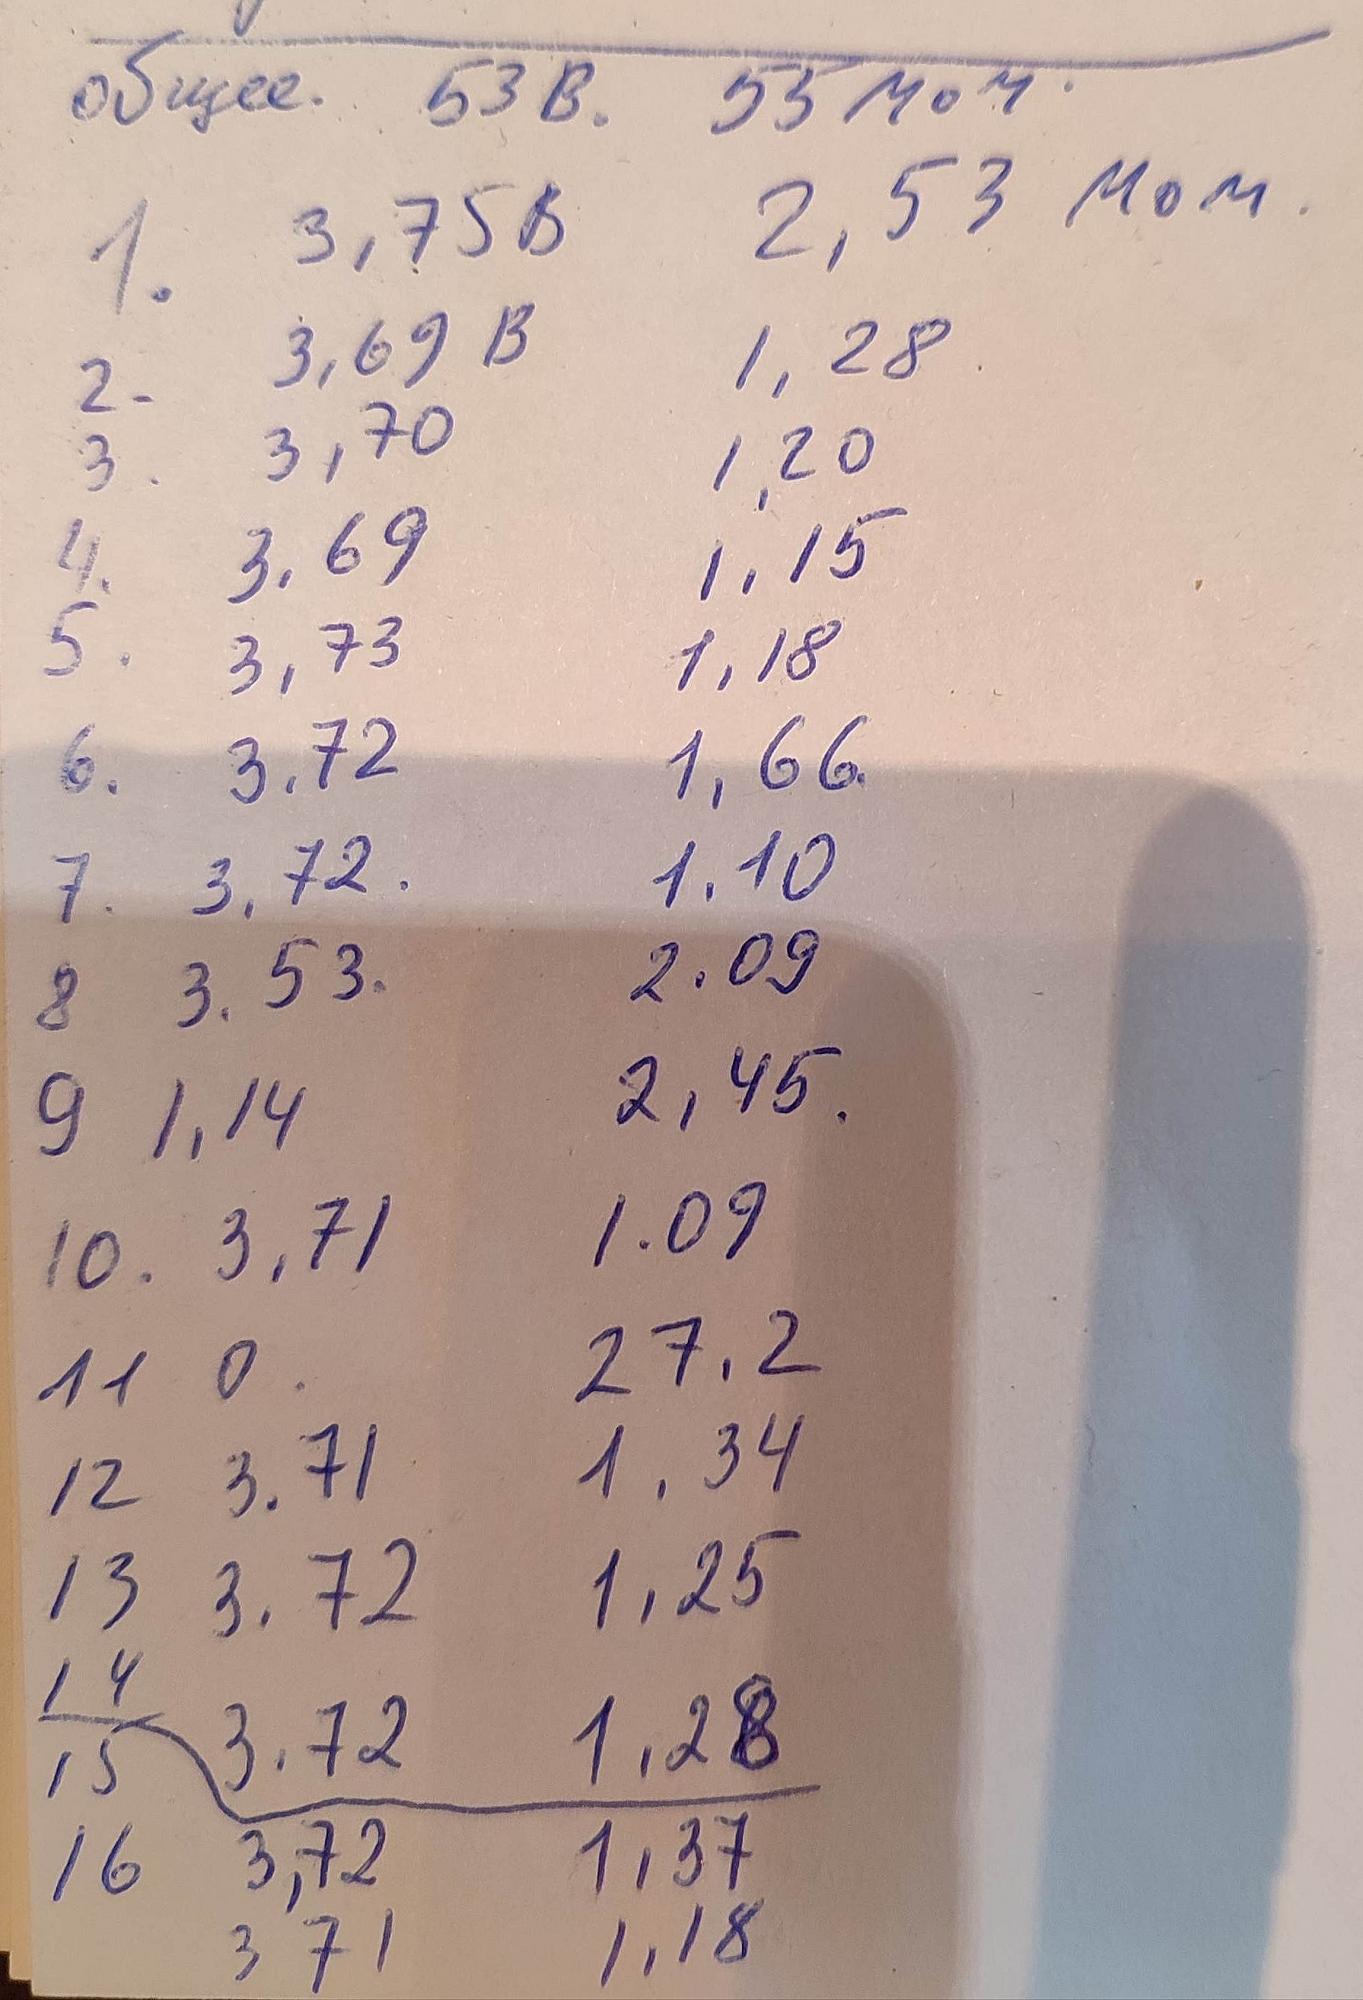 общее. 53 В. 55 мом.
1. 3,75 В 2,53 мом.
2. 3,69 В 1,28
3. 3,70 1,20
4. 3.69 1,15
5. 3,73 1,18
6. 3.72 1,66
7. 3,72. 1.10
8 3.53. 2.09
9 1,14 2,45.
10. 3,71 1.09
11 0. 27.2
12 3.71 1,34
13 3.72 1,25
14 3.72 1,28
15 3,72 1,37
16 3 71 1,18